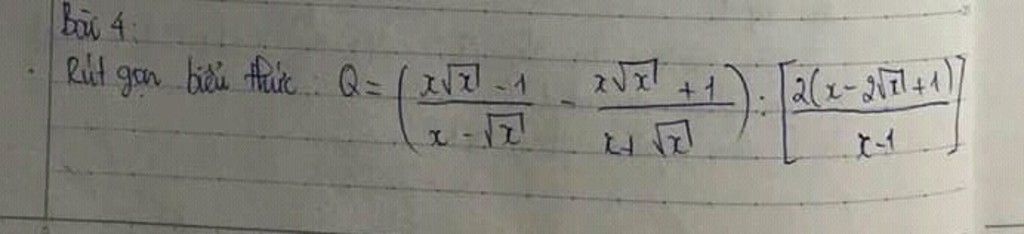 Bài 4:
Rút gọn biểu thức: Q = ( (x√x - 1)/(x - √x) - (x√x + 1)/(x + √x) ) : [ 2(x - 2√x + 1)/(x - 1) ]